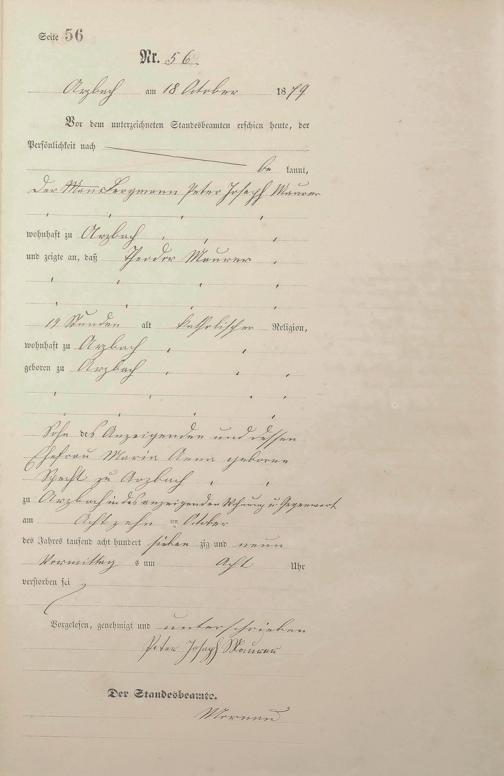 Seite 56
Nr. 56
Arzbach am 18 October 1879
Vor dem unterzeichneten Standesbeamten erschien heute, der
Persönlichkeit nach
be kannt,
der Bergmann Peter Joseph Maurer
wohnhaft zu Arzbach
und zeigte an, daß Theodor Maurer
Stunden alt katholischer Religion,
wohnhaft zu Arzbach
geboren zu Arzbach
Sohn des Anzeigenden und dessen
Ehefrau Maria Anna geborne
Specht zu Arzbach
zu Arzbach in des anzeigenden Wohnung u Gegenwart
am Achtzehn ten October
des Jahres tausend acht hundert sieben zig und neun
Vormittag s um Acht Uhr
verstorben sei
Vorgelesen, genehmigt und unterschrieben
Peter Joseph Maurer
Der Standesbeamte.